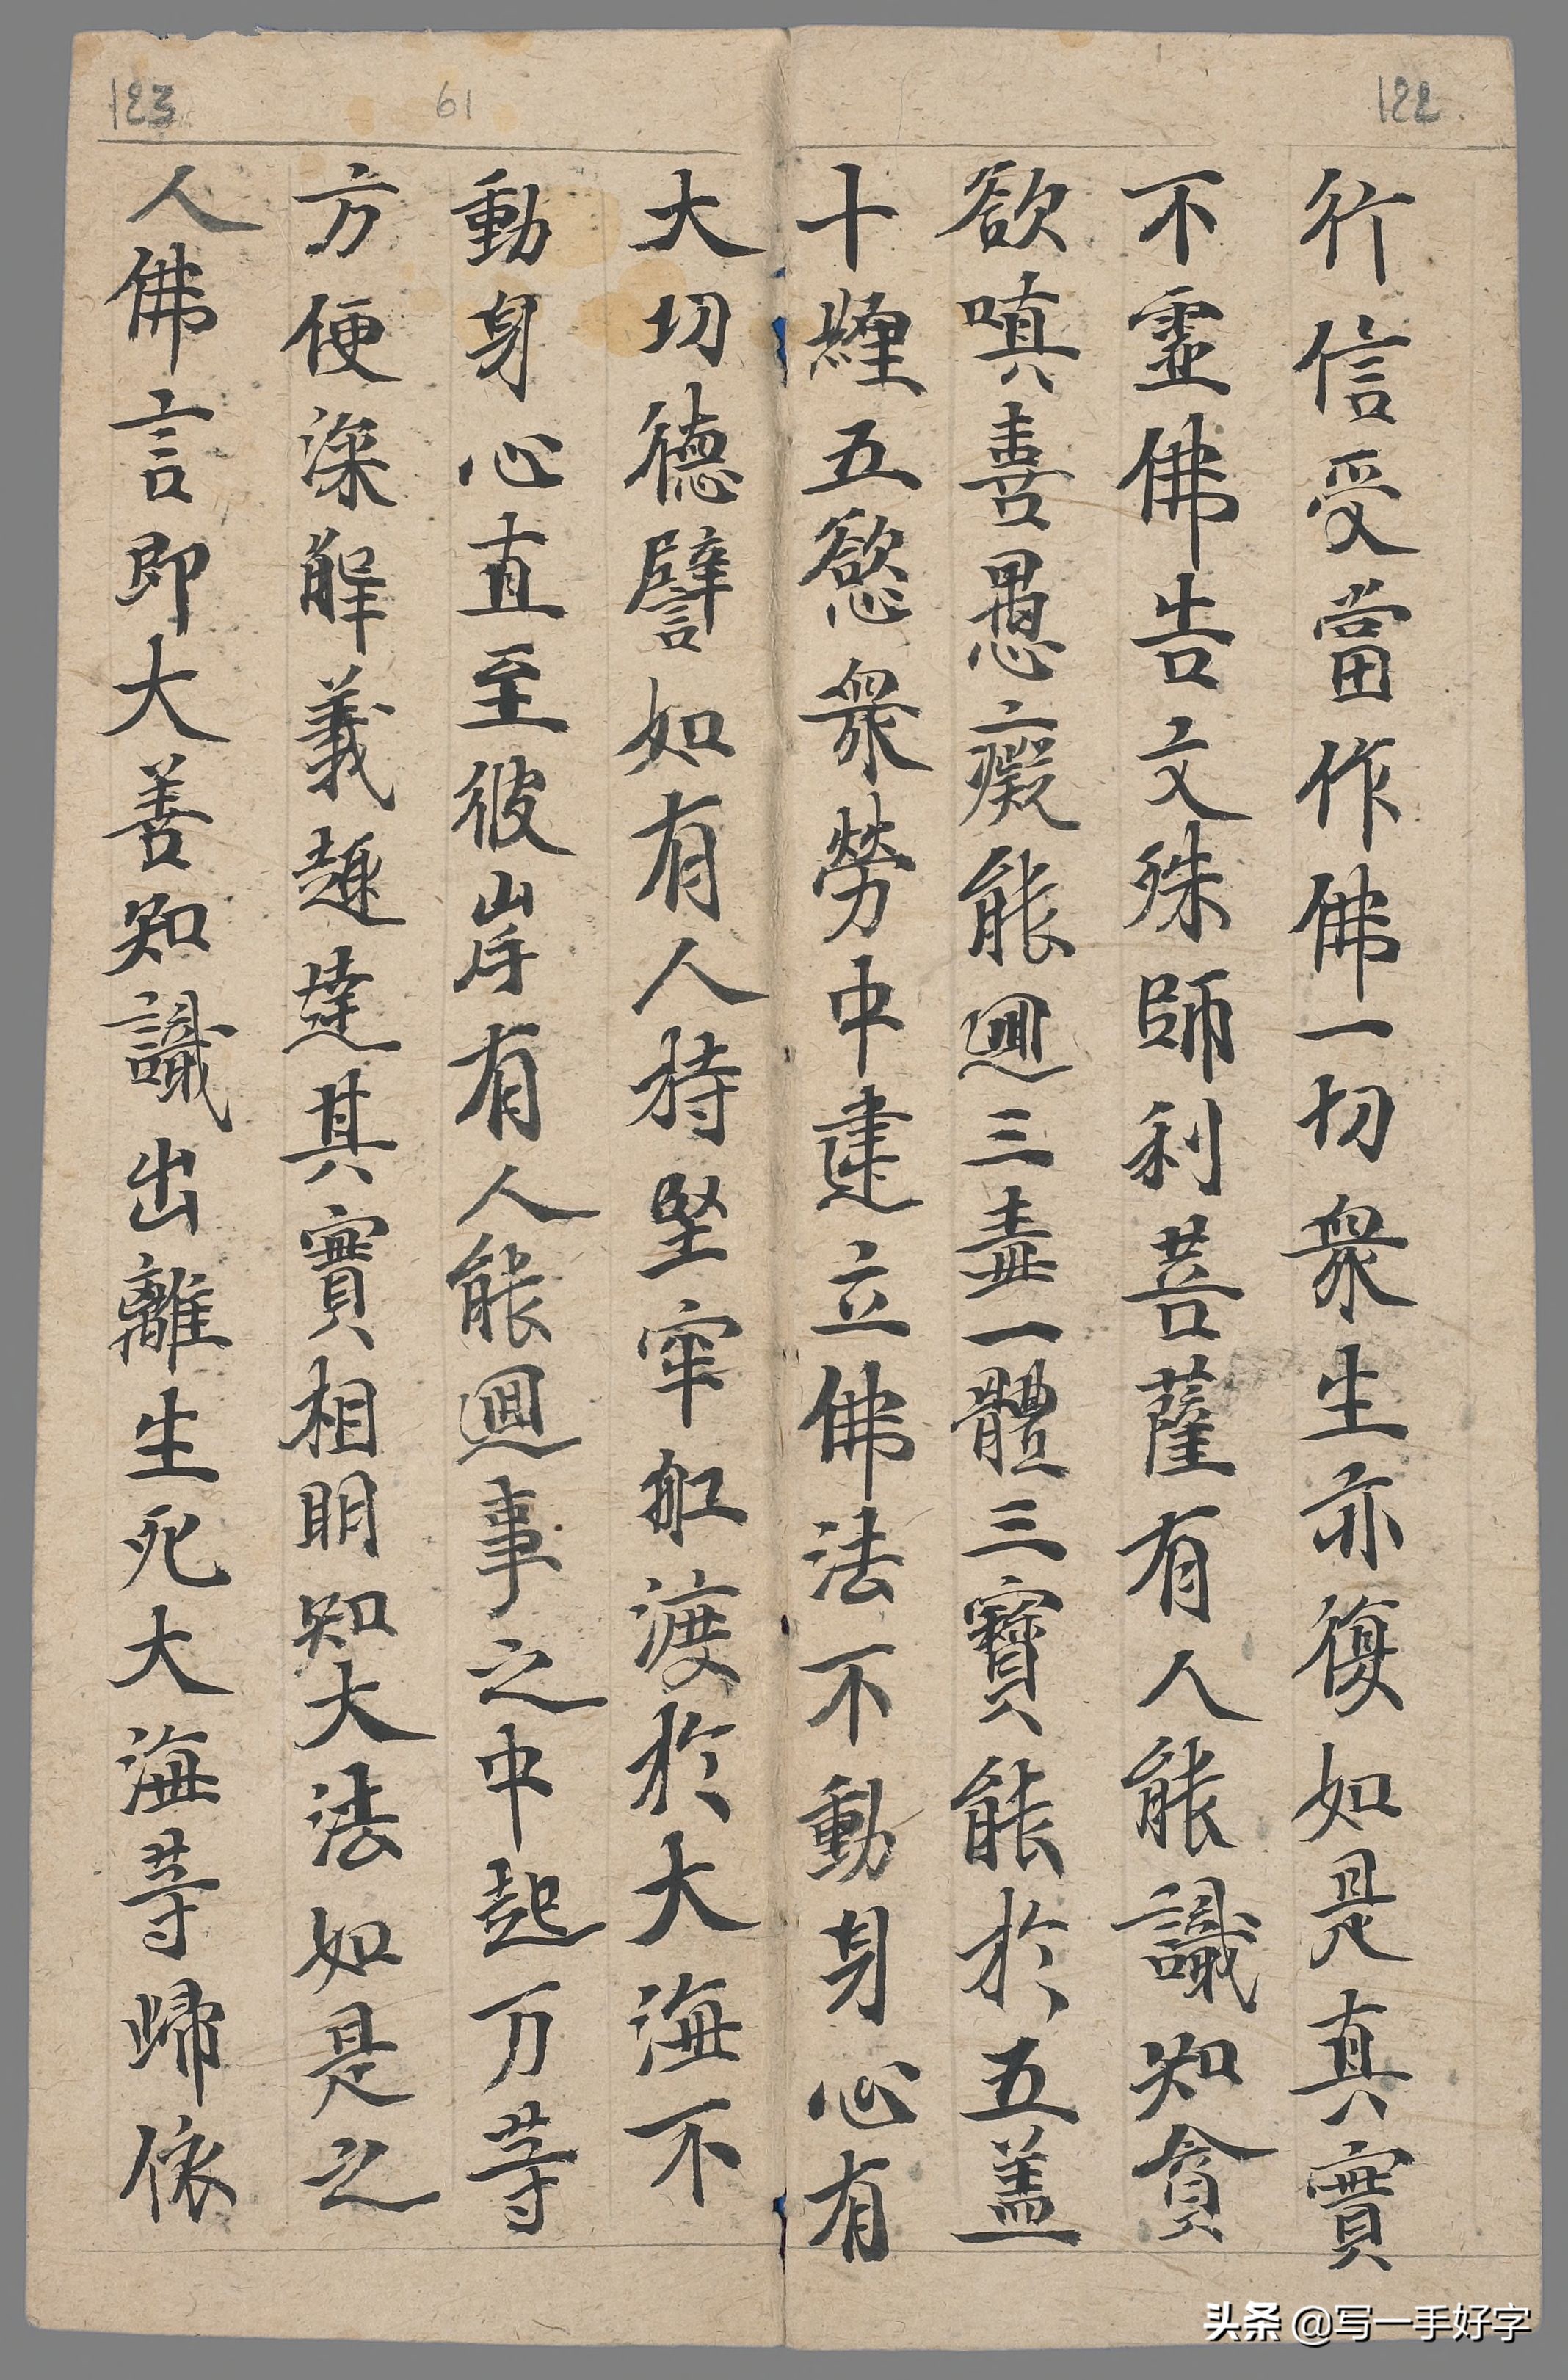 122
行信受當作佛一切衆生亦復如是真實
不虛佛告文殊師利菩薩有人能識知貪
欲嗔恚愚癡能迴三毒一體三寶能於五蓋
十纏五慾衆勞中建立佛法不動身心有
61
123
大切德譬如有人持堅牢舡渡於大海不
動身心直至彼岸有人能迴事之中起万等
方便深解義趣達其實相明知大法如是之
人佛言即大善知識出離生死大海等歸依
头条 @写一手好字